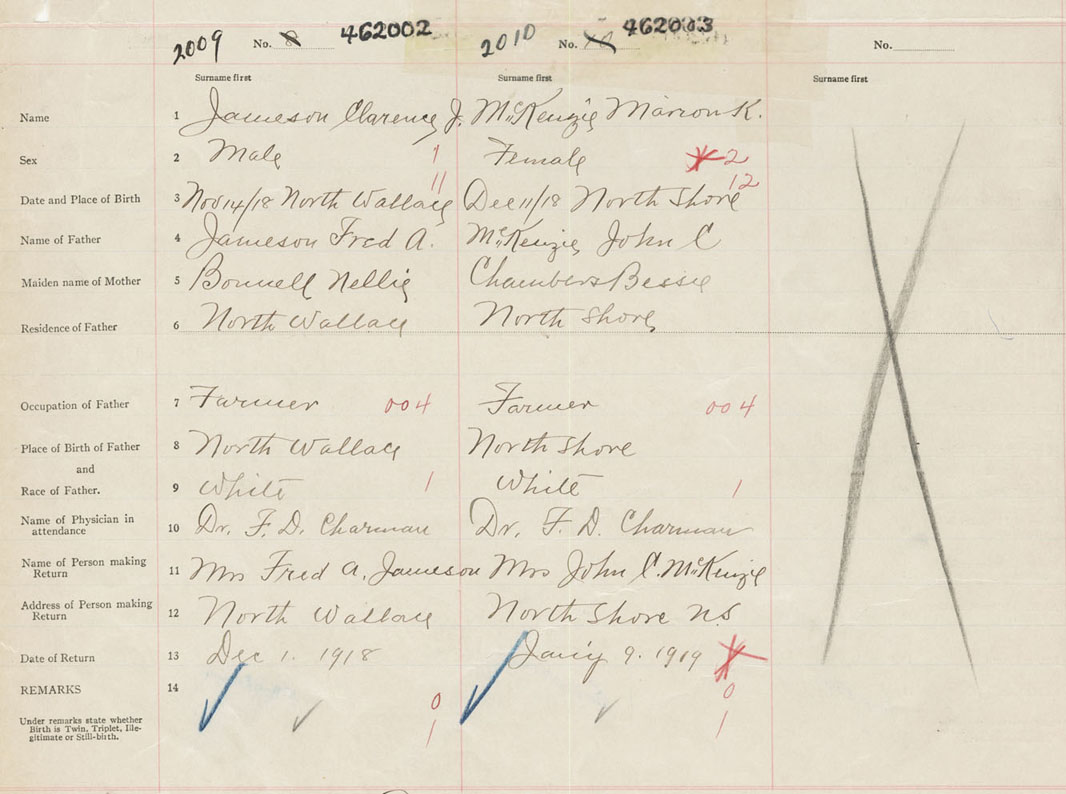 2009 No. 8 462002 2010 No. 10 462003 No.
Surname first Surname first Surname first
Name 1 Jameson Clarence J. McKenzie Marion K.
Sex 2 Male 1 Female 2
11 12
Date and Place of Birth 3 Nov 14/18 North Wallace Dec 11/18 North Shore
Name of Father 4 Jameson Fred A. McKenzie John C
Maiden name of Mother 5 Bonnell Nellie Chambers Bessie
Residence of Father 6 North Wallace North Shore
Occupation of Father 7 Farmer 004 Farmer 004
Place of Birth of Father 8 North Wallace North Shore
and
Race of Father. 9 White 1 White 1
Name of Physician in
attendance 10 Dr. F. D. Charman Dr. F. D. Charman
Name of Person making
Return 11 Mrs Fred A. Jameson Mrs John C. McKenzie
Address of Person making
Return 12 North Wallace North Shore N.S
Date of Return 13 Dec 1. 1918 Jan'y 9. 1919
REMARKS 14
0 0
Under remarks state whether
Birth is Twin, Triplet, Ille-
gitimate or Still-birth.
1 1